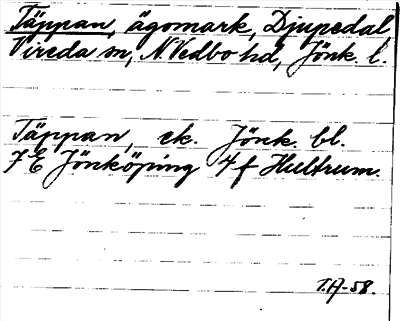 Täppan, ägomark, Djupedal
Vireda sn, N. Vedbo hd, Jönk. l.
Täppan, ek. Jönk. bl.
7E Jönköping 4f Hultrum.
T.A-58.